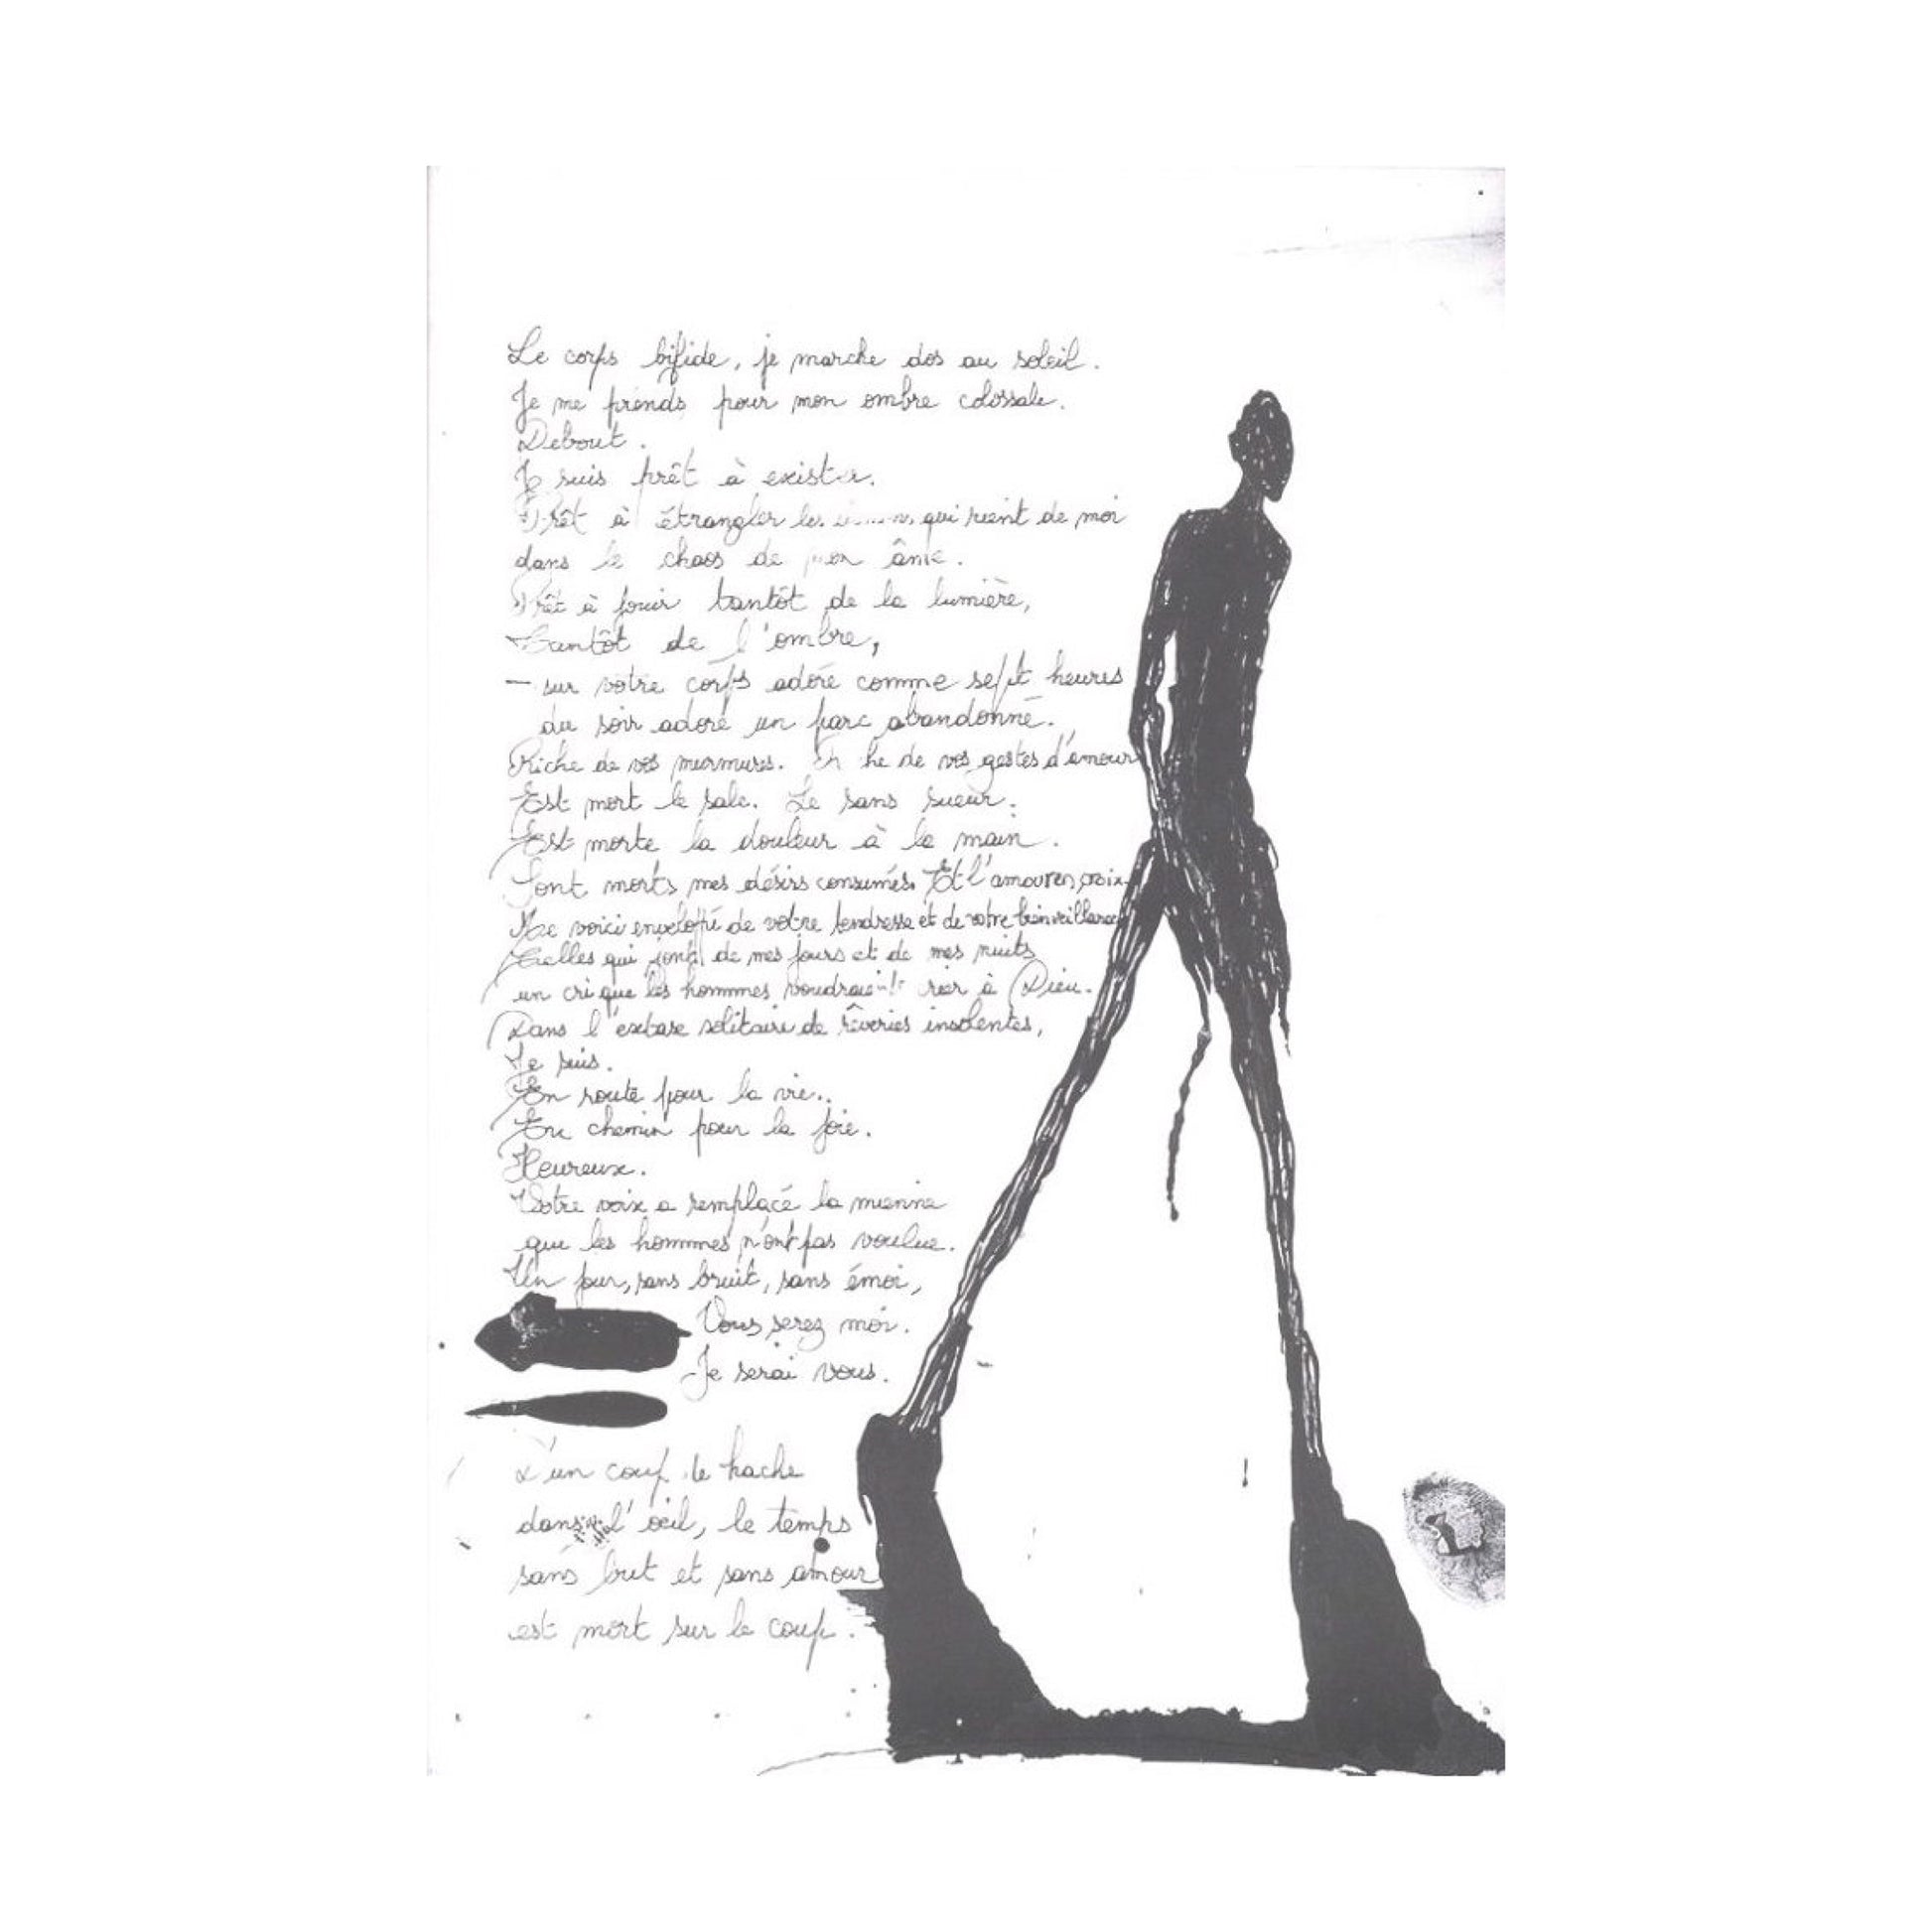 Le corps bifide, je marche dos au soleil.
Je me prends pour mon ombre colossale.
Debout.
Je suis prêt à exister.
Prêt à étrangler les qui rient de moi
dans le chaos de mon âme.
Prêt à jouir tantôt de la lumière,
Tantôt de l'ombre,
— sur votre corps adoré comme sept heures
du soir adoré un parc abandonné.
Riche de vos murmures. Riche de vos gestes d'amour
Est mort le sale. Le sans sueur.
Est morte la douleur à la main.
Sont morts mes désirs consumés. Et l'amour en croix.
Me voici enveloppé de votre tendresse et de votre bienveillance
Celles qui font de mes jours et de mes nuits
un cri que les hommes voudraient crier à Dieu.
Dans l'extase solitaire de rêveries insolentes,
Je suis.
En route pour la vie..
En chemin pour la joie.
Heureux.
Votre voix a remplacé la mienne
que les hommes n'ont pas voulue.
Un jour, sans bruit, sans émoi,
Vous serez moi.
Je serai vous.
D'un coup de hache
dans l'œil, le temps
sans but et sans amour
est mort sur le coup.